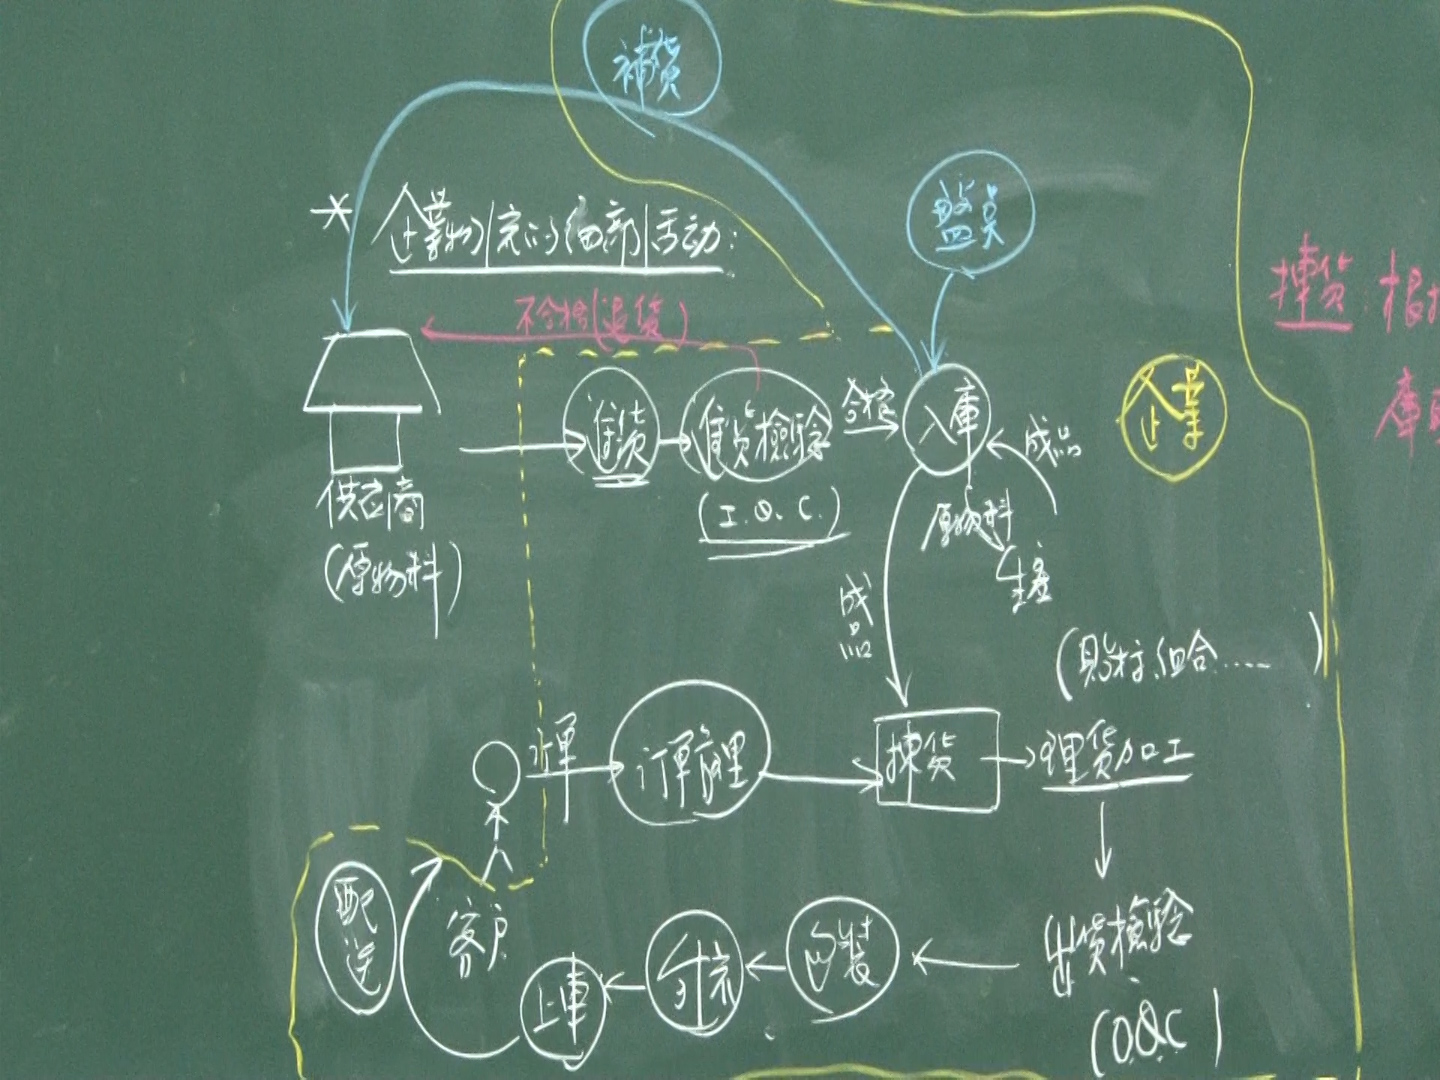 補貨
盤點
* 企業物流的細部活動:
不合格(退貨)
揀貨:根
庫
進貨
進貨檢驗
合格
入庫
成品
企業
(I.Q.C.)
供应商
(原物料)
原物料
生產
成品
(貼标.組合.....)
訂單
訂單處理
揀貨
理貨加工
配送
客戶
上車
分流
包裝
出貨檢驗
(OQC)